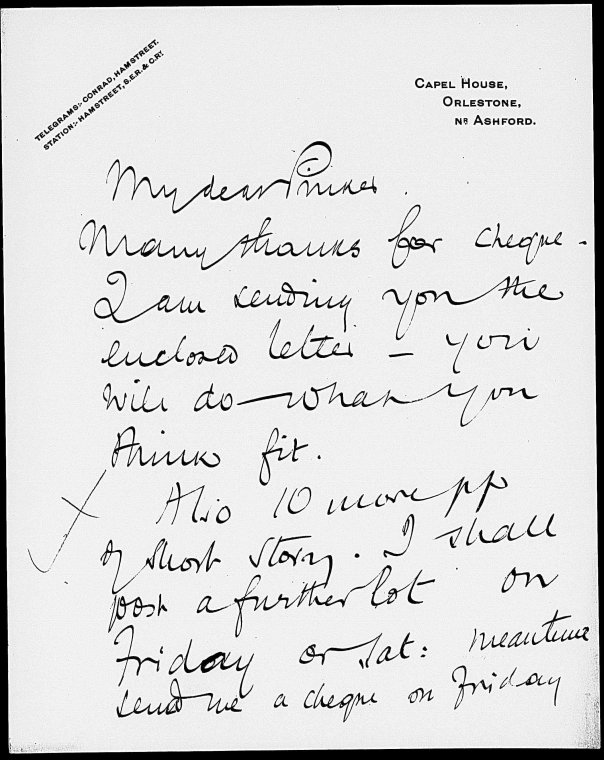 TELEGRAMS:- CONRAD, HAMSTREET.
STATION:- HAMSTREET, S.E.R. & C.RY.
CAPEL HOUSE,
ORLESTONE,
NR ASHFORD.
My dear Pinker.
Many thanks for cheque -
I am sending you the
enclosed letter – you
will do what you
think fit.
Also 10 more pp
of short story. I shall
post a further lot on
Friday or Sat: meantime
send me a cheque on Friday